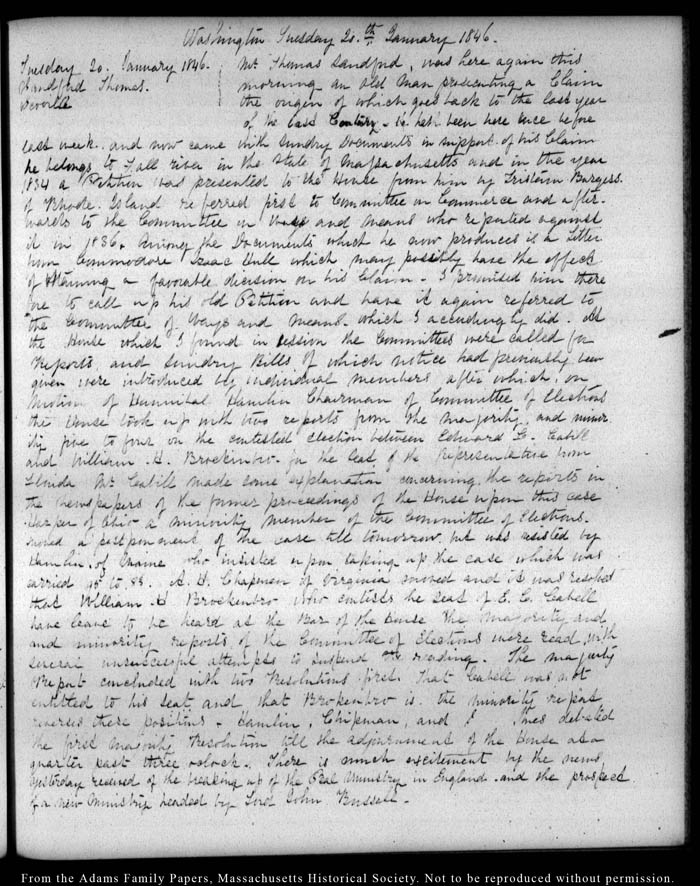 Washington Tuesday 20.th January 1846.
Tuesday 20. January 1846.
Sandford Thomas.
Mr Thomas Sandford, was here again this
morning an old man prosecuting a Claim
the origin of which goes back to the last year
of the last Century - he hath been here once before
last week. and now came with sundry Documents in support of his Claim
he belongs to Fall river in the State of Massachusetts and in the year
1834 a Petition was presented to the House from him by Tristam Burgess
of Rhode. Island referred first to Committee on Commerce and after-
wards to the Committee on Ways and Means who reported against
it in 1836. Among the Documents which he now produces is a Letter
from Commodore Isaac Hull which may possibly have the effect
of obtaining a favourable decision on his Claim - I promised him there
fore to call up his old Petition and have it again referred to
the Committee of Ways and Means. which I accordingly did. At
the House which I found in session the Committees were called for
Reports, and sundry Bills of which notice had previously been
given were introduced by individual members after which, on
Motion of Hannibal Hamlin Chairman of Committee of Elections
the House took up with two reports from the majority, and minor
ity five to four on the contested election between Edward C. Cabell
and William. H. Brockenbro. for the Seat of the Representative from
Florida Mr Cabell made some explanation concerning the reports in
the newspapers of the former proceedings of the House upon this case
Harper of Ohio a minority member of the Committee of Elections.
moved a postponement of the case till tomorrow, but was resisted by
Hamlin, of Maine who insisted upon taping up the case which was
carried to 88. A. A. Chapman of Virginia moved and it was resolved
that William. H Brockenbro who contests the seat of E. C. Cabell
have leave to be heard at the Bar of the House The majority and
and minority reports of the Committee of Elections were read, with
several unsuccessful attempts to suspend the reading. The majority
Report concluded with two Resolutions first. That Cabell was not
entitled to his seat, and, that Brokenbro is. the minority report
reverses these positions - Hamlin, Chipman, and debated
the first majority Resolution till the adjournment of the House at a
quarter past three o'clock. There is much excitement by the news
yesterday received of the breaking up of the Peel Ministry in England. and the prospect
of a new Ministry headed by Lord John Russell.
From the Adams Family Papers, Massachusetts Historical Society. Not to be reproduced without permission.